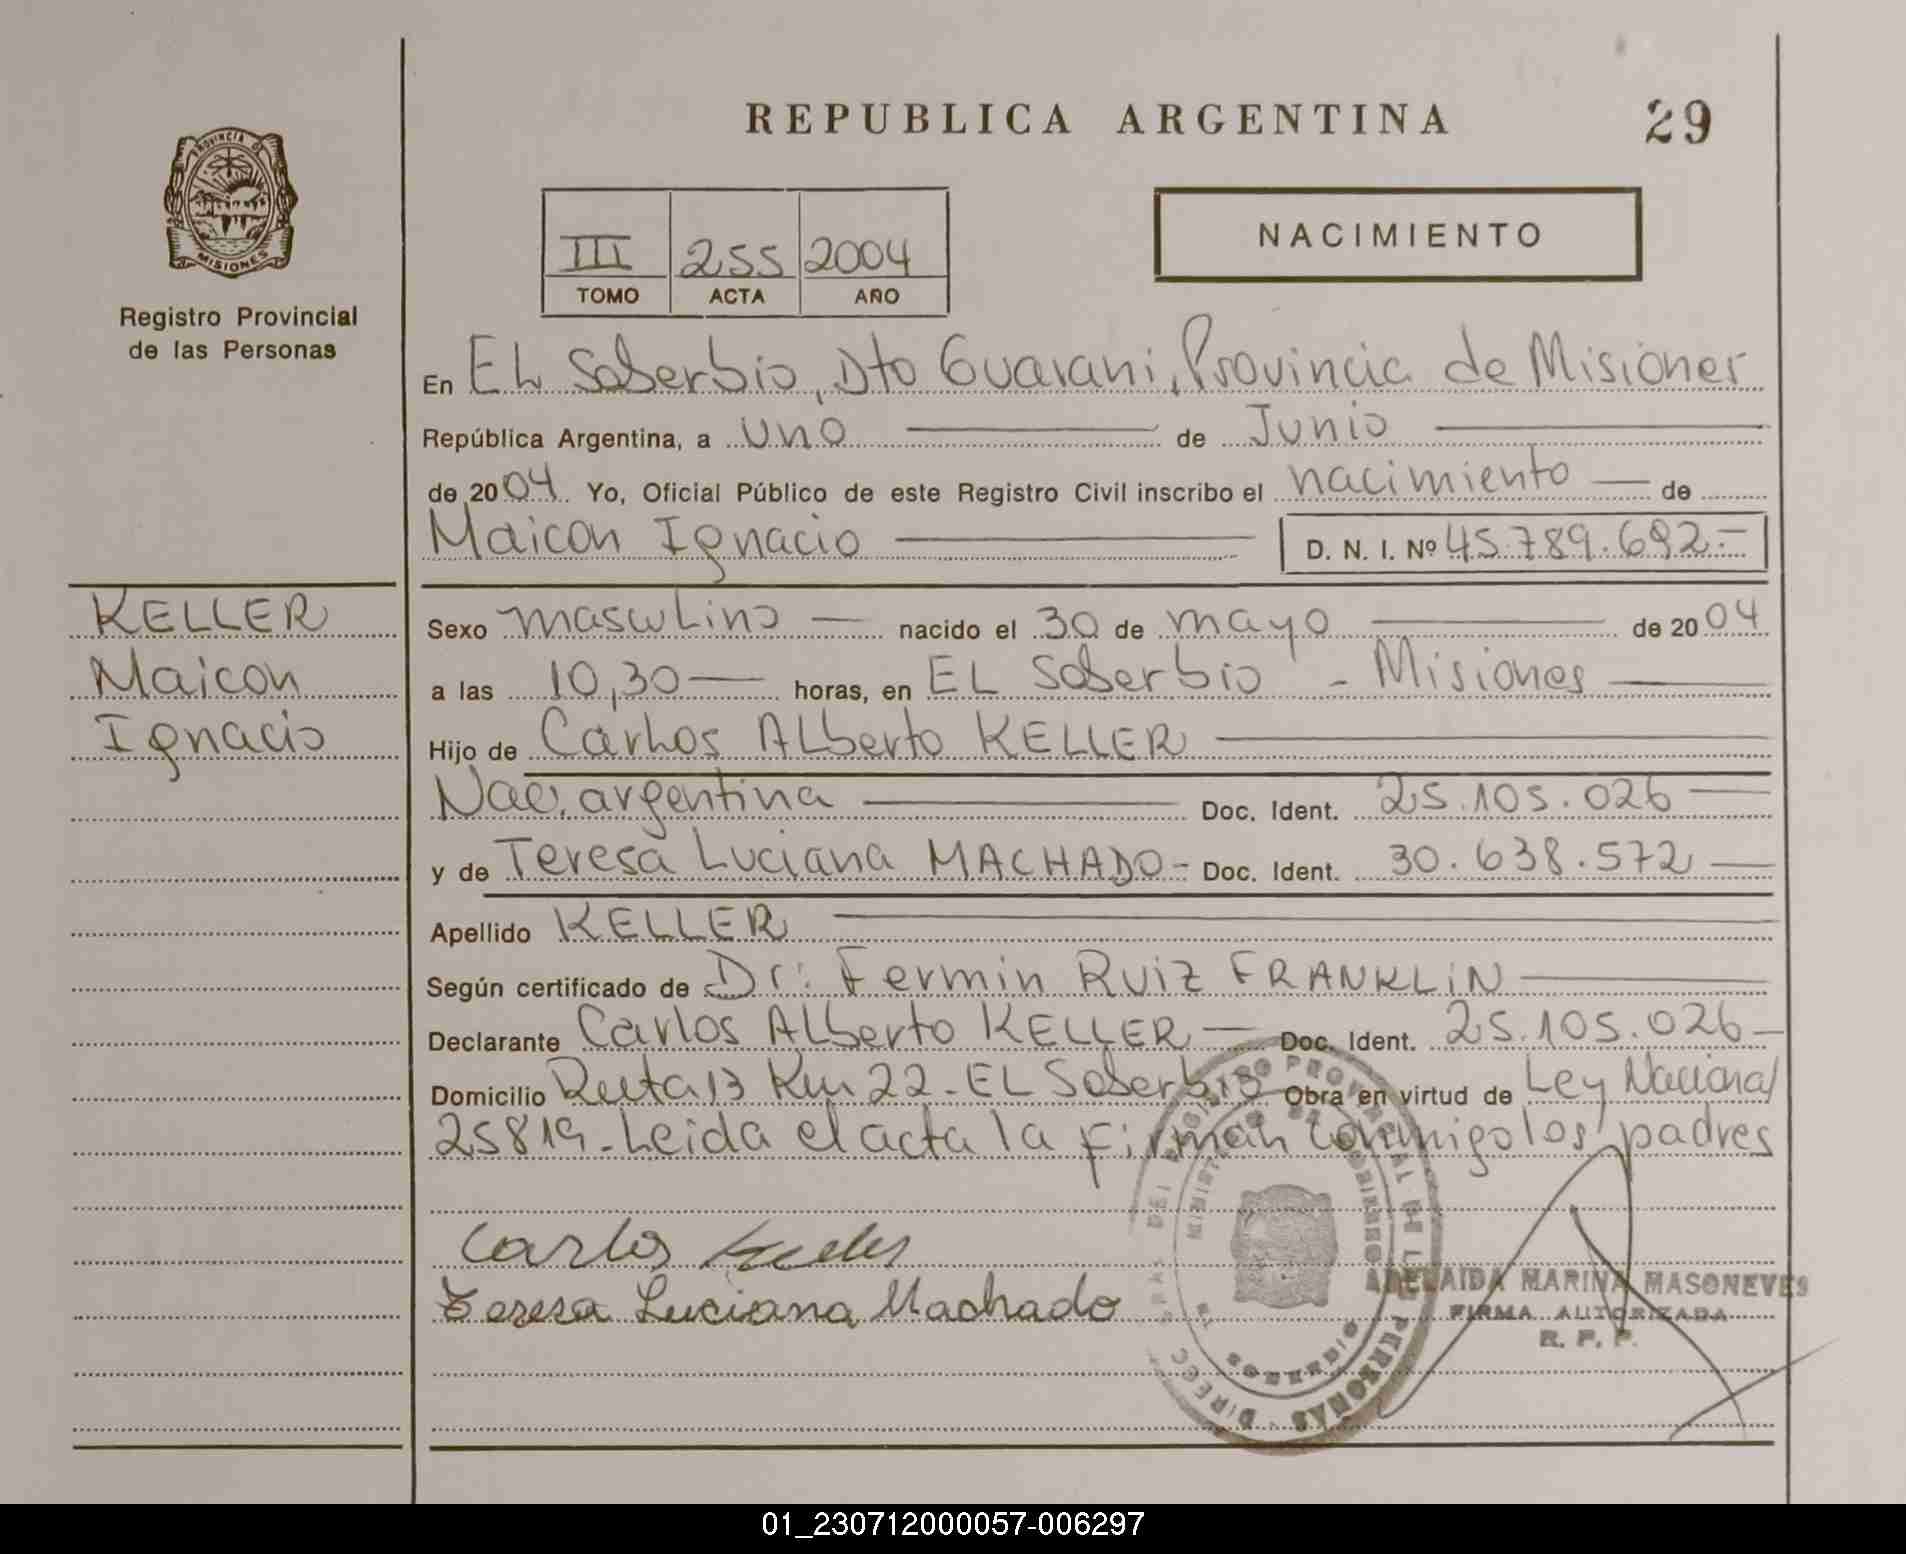 REPUBLICA ARGENTINA
29
PROVINCIA D
MISIONES
Registro Provincial
de las Personas
III 255 2004
TOMO ACTA AÑO
NACIMIENTO
En EL Soberbio, Dto Guarani, Provincia de Misiones
República Argentina, a uno de Junio
de 2004 Yo, Oficial Público de este Registro Civil inscribo el nacimiento de
Maicon Ignacio D. N. I. Nº 45.789.692.-
KELLER
Maicon
Ignacio
Sexo masculino nacido el 30 de mayo de 2004
a las 10,30 horas, en EL Soberbio - Misiones
Hijo de Carlos ALberto KELLER
Nac. argentina Doc. Ident. 25.105.026
y de Teresa Luciana MACHADO- Doc. Ident. 30.638.572
Apellido KELLER
Según certificado de Dr: Fermin Ruiz FRANKLIN
Declarante Carlos ALberto KELLER Doc. Ident. 25.105.026
Domicilio Ruta 13 Km 22 - EL Soberbio Obra en virtud de Ley Nacional
25819 - Leida el acta la firman conmigo los padres
Carlos Keller
Teresa Luciana Machado
ADELAIDA MARINA MASONEVES
FIRMA AUTORIZADA
R. P. P.
01_230712000057-006297